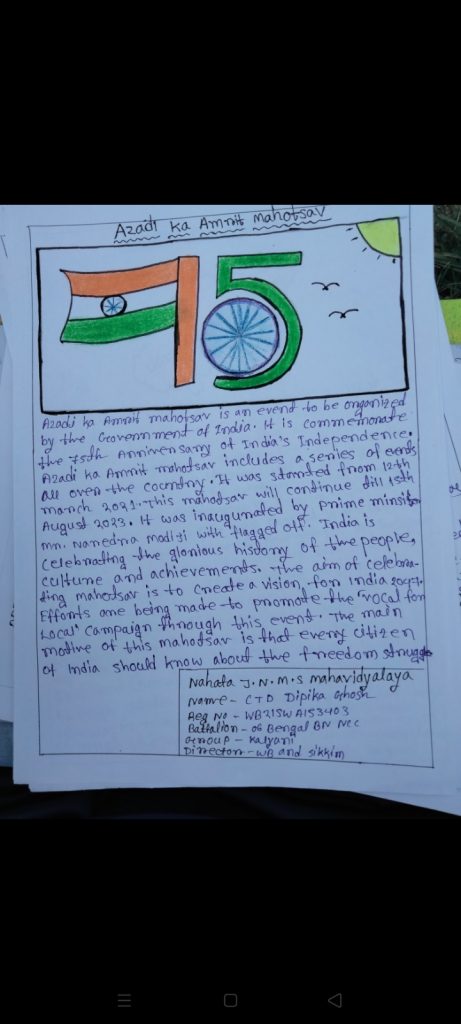 Azadi ka Amrit mahotsav
75
Azadi ka Amrit mahotsav is an event to be organized
by the Government of India. It is commemorate
the 75th Anniversary of India's Independence.
Azadi ka Amrit mahotsav includes a series of events
all over the country. It was started from 12th
march 2021. This mahotsav will continue till 15th
August 2023. It was inaugurated by prime minsiter
mr. Naredra modiji with flagged off. India is
celebrating the glorious history of the people,
culture and achievements. The aim of celebra-
ting mahotsav is to create a vision for India 2047.
Efforts are being made to promote the "vocal for
Local" Campaign through this event. The main
motive of this mahotsav is that every citizen
of India should know about the freedom struggle
Nahata J.N.M.S mahavidyalaya
Name - CTD Dipika Ghosh
Reg No - WB21SWA153403
Battalion - 06 Bengal BN NCC
Group - Kalyani
Director - WB and Sikkim